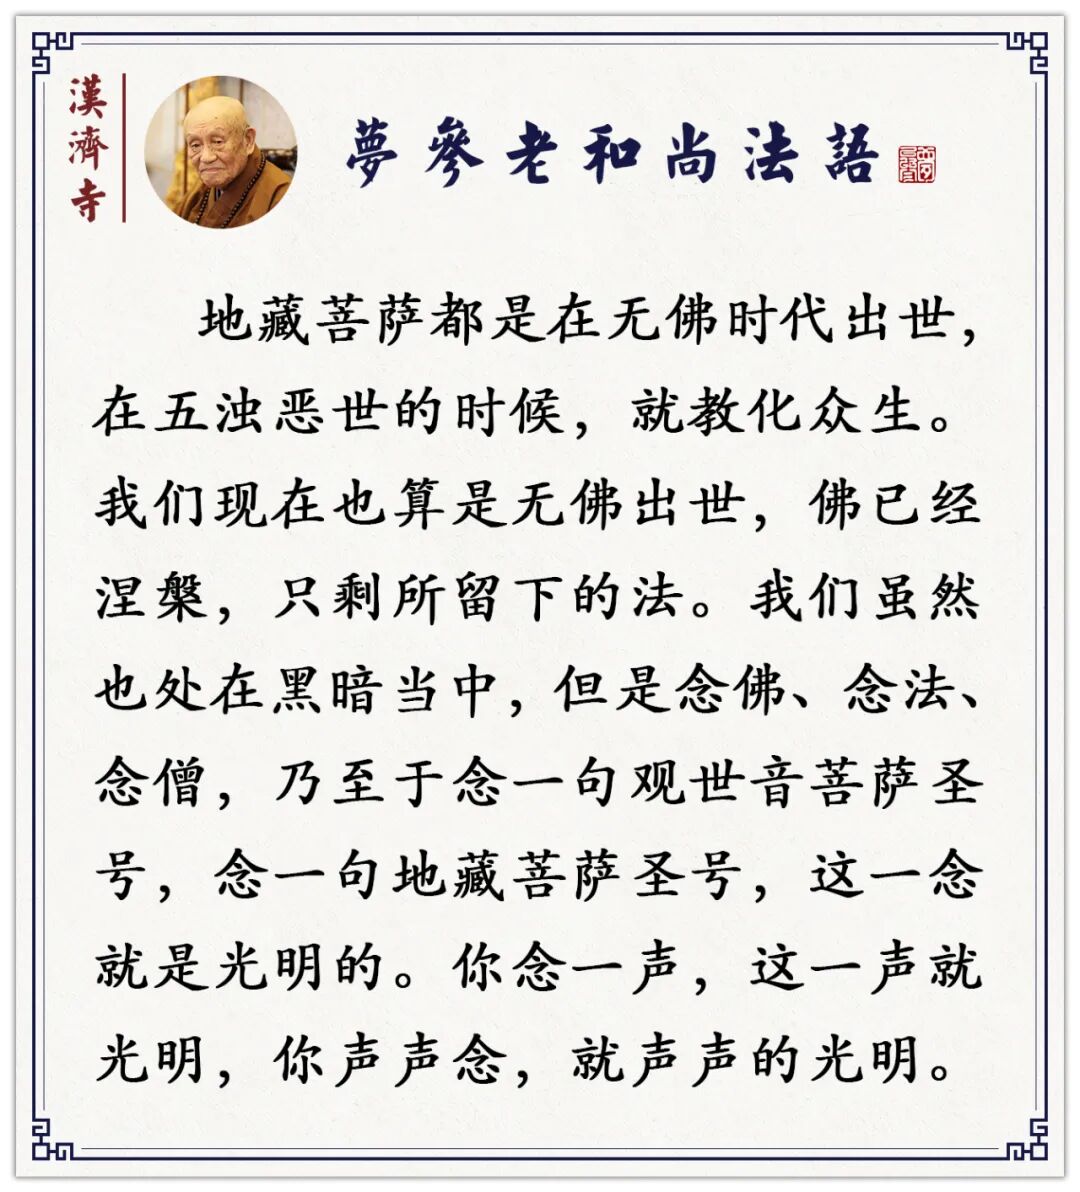 漢濟寺
夢參老和尚法語
地藏菩萨都是在无佛时代出世，
在五浊恶世的时候，就教化众生。
我们现在也算是无佛出世，佛已经
涅槃，只剩所留下的法。我们虽然
也处在黑暗当中，但是念佛、念法、
念僧，乃至于念一句观世音菩萨圣
号，念一句地藏菩萨圣号，这一念
就是光明的。你念一声，这一声就
光明，你声声念，就声声的光明。